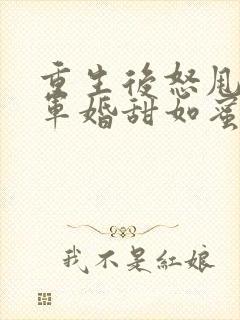 重生後怒甩
軍婚甜如蜜
我不是紅娘